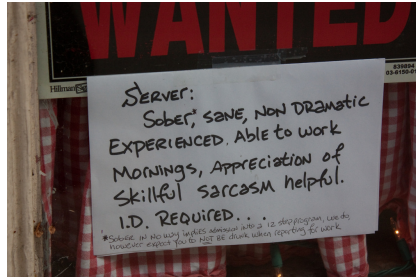 WANTED
Hillman
839894
03-6150-01
SERVER:
Sober,* SANE, NON DRAMATIC
EXPERIENCED. Able to work
MORNINGS, APPRECIATION of
Skillful SARCASM helpful.
I.D. REQUIRED...
*SOBER IN NO WAY implies admission into a 12 step program, we do,
however expect you to NOT BE drunk when reporting for work